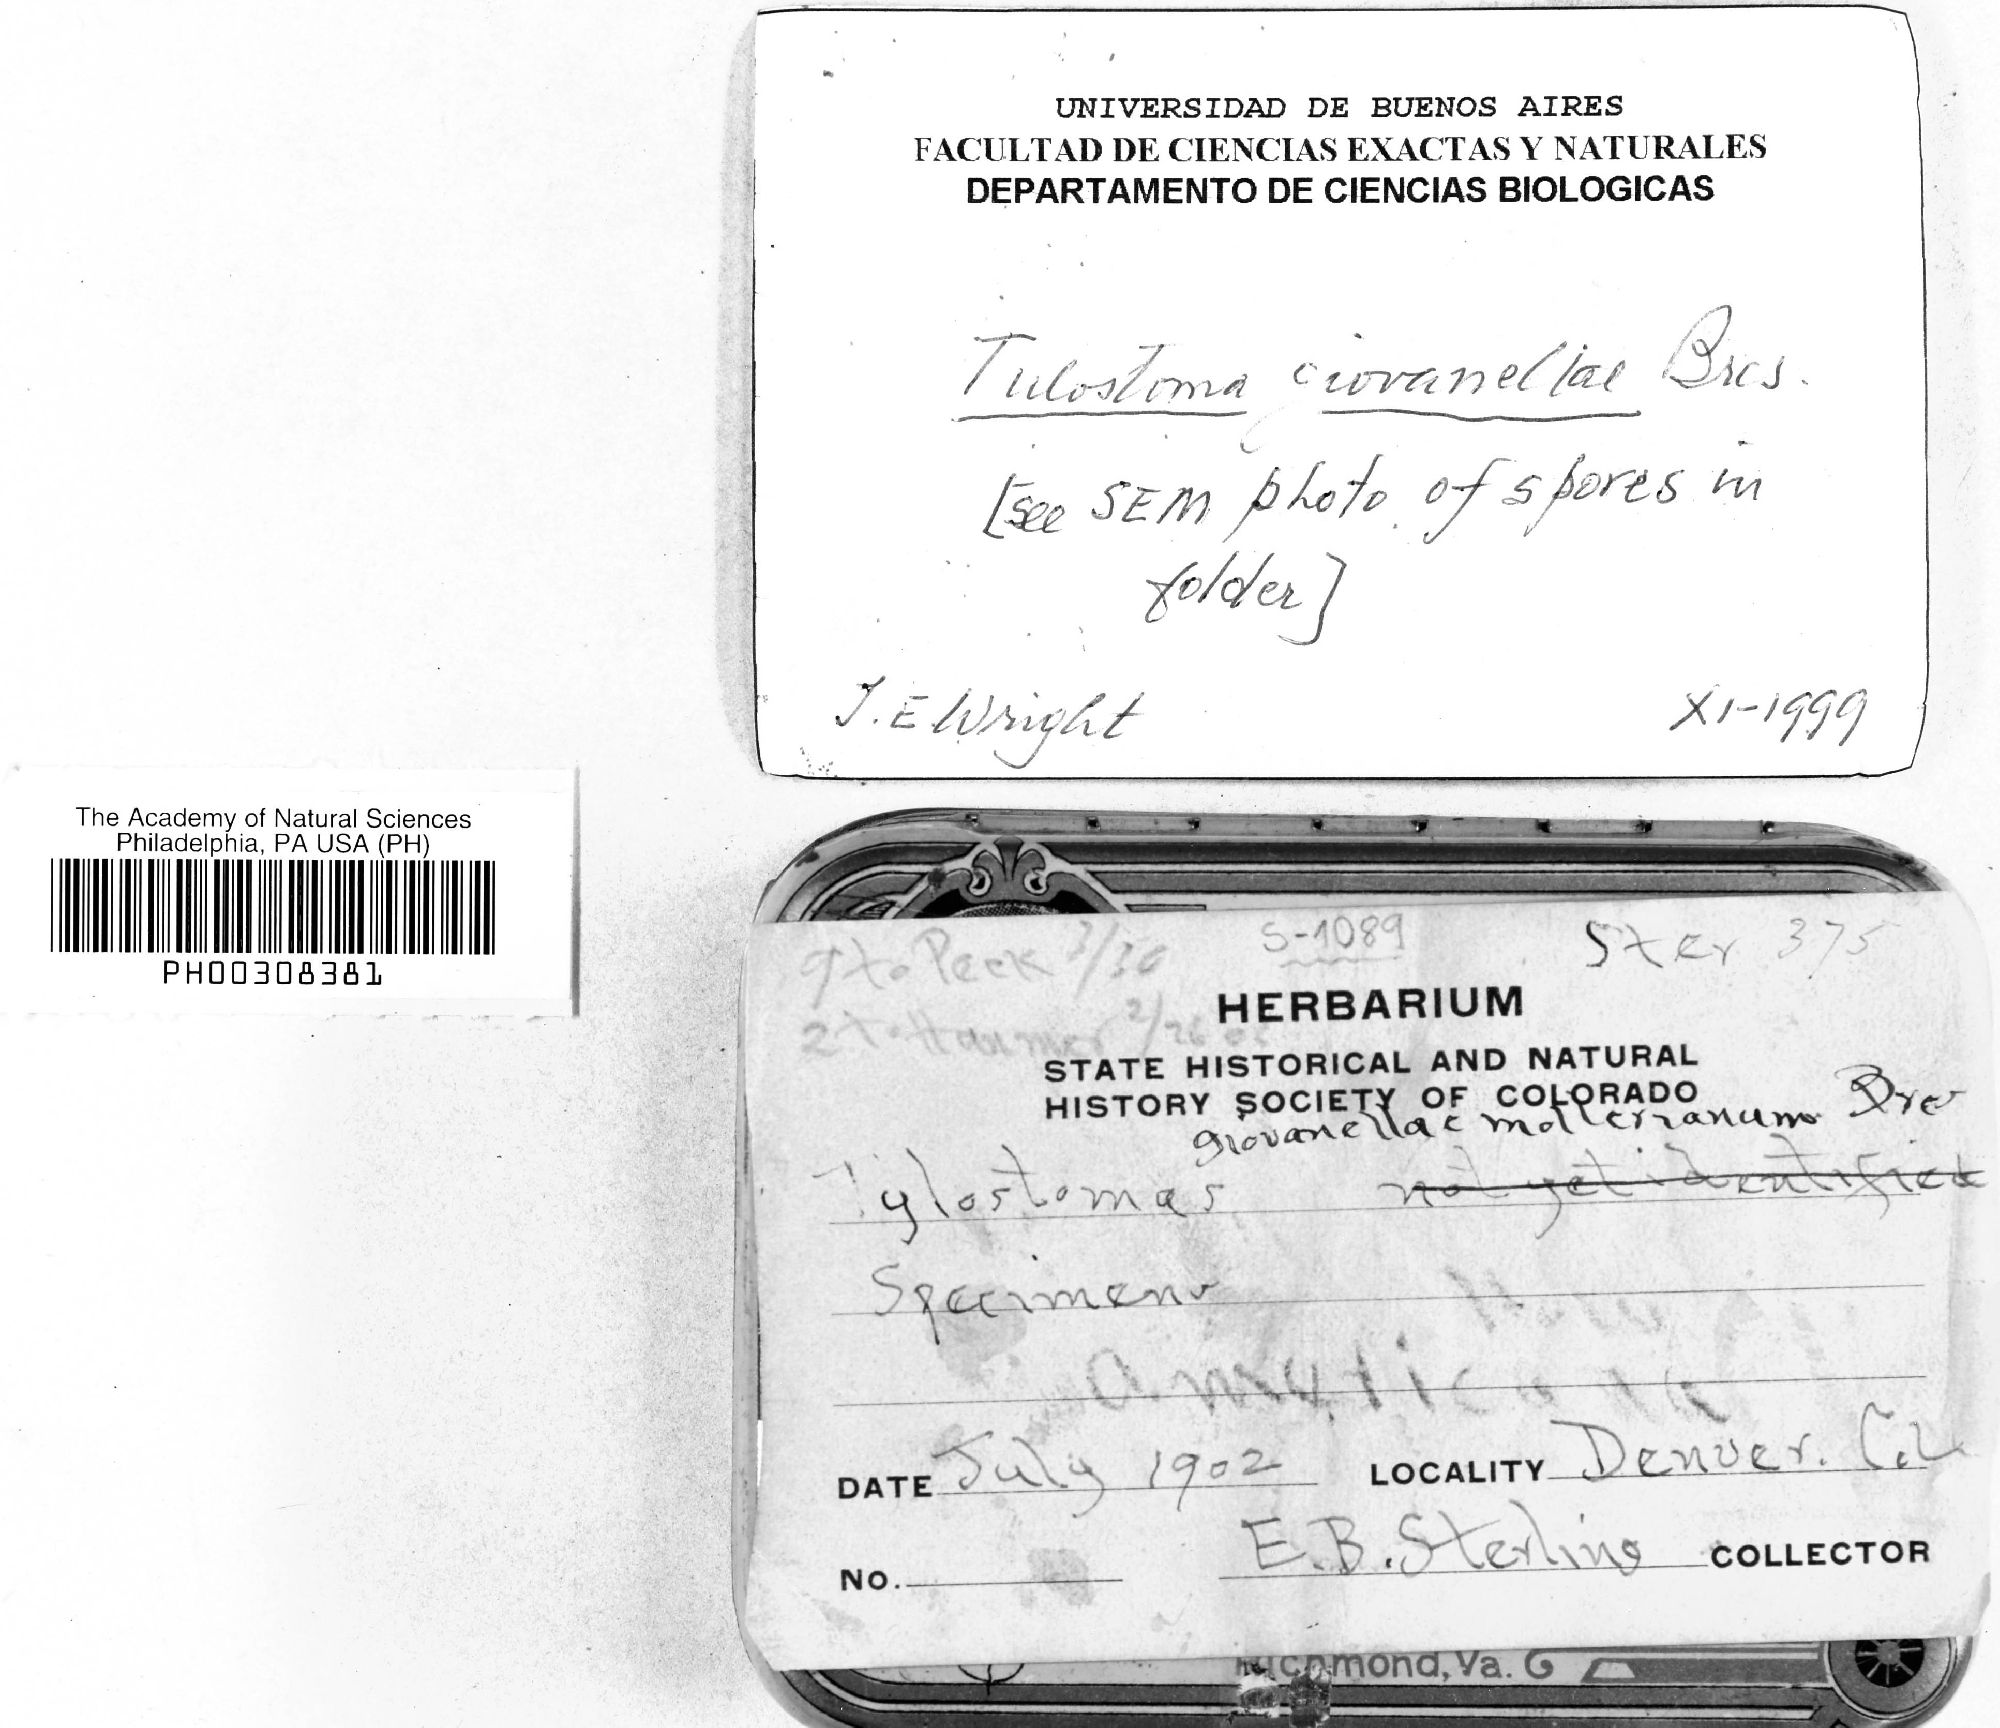 UNIVERSIDAD DE BUENOS AIRES
FACULTAD DE CIENCIAS EXACTAS Y NATURALES
DEPARTAMENTO DE CIENCIAS BIOLOGICAS
Tulostoma giovanellae Bres.
[see SEM photo of spores in
folder]
J. E. Wright XI-1999
The Academy of Natural Sciences
Philadelphia, PA USA (PH)
PH00308381
S-1089 Ster 375
9 to Peck 3/30
2 to 2/26
HERBARIUM
STATE HISTORICAL AND NATURAL
HISTORY SOCIETY OF COLORADO
giovanellae mollerianum Bres
Tylostomas not yet identified
Specimens
DATE July 1902 LOCALITY Denver. Col
NO. E. B. Sterling COLLECTOR
Richmond, Va.